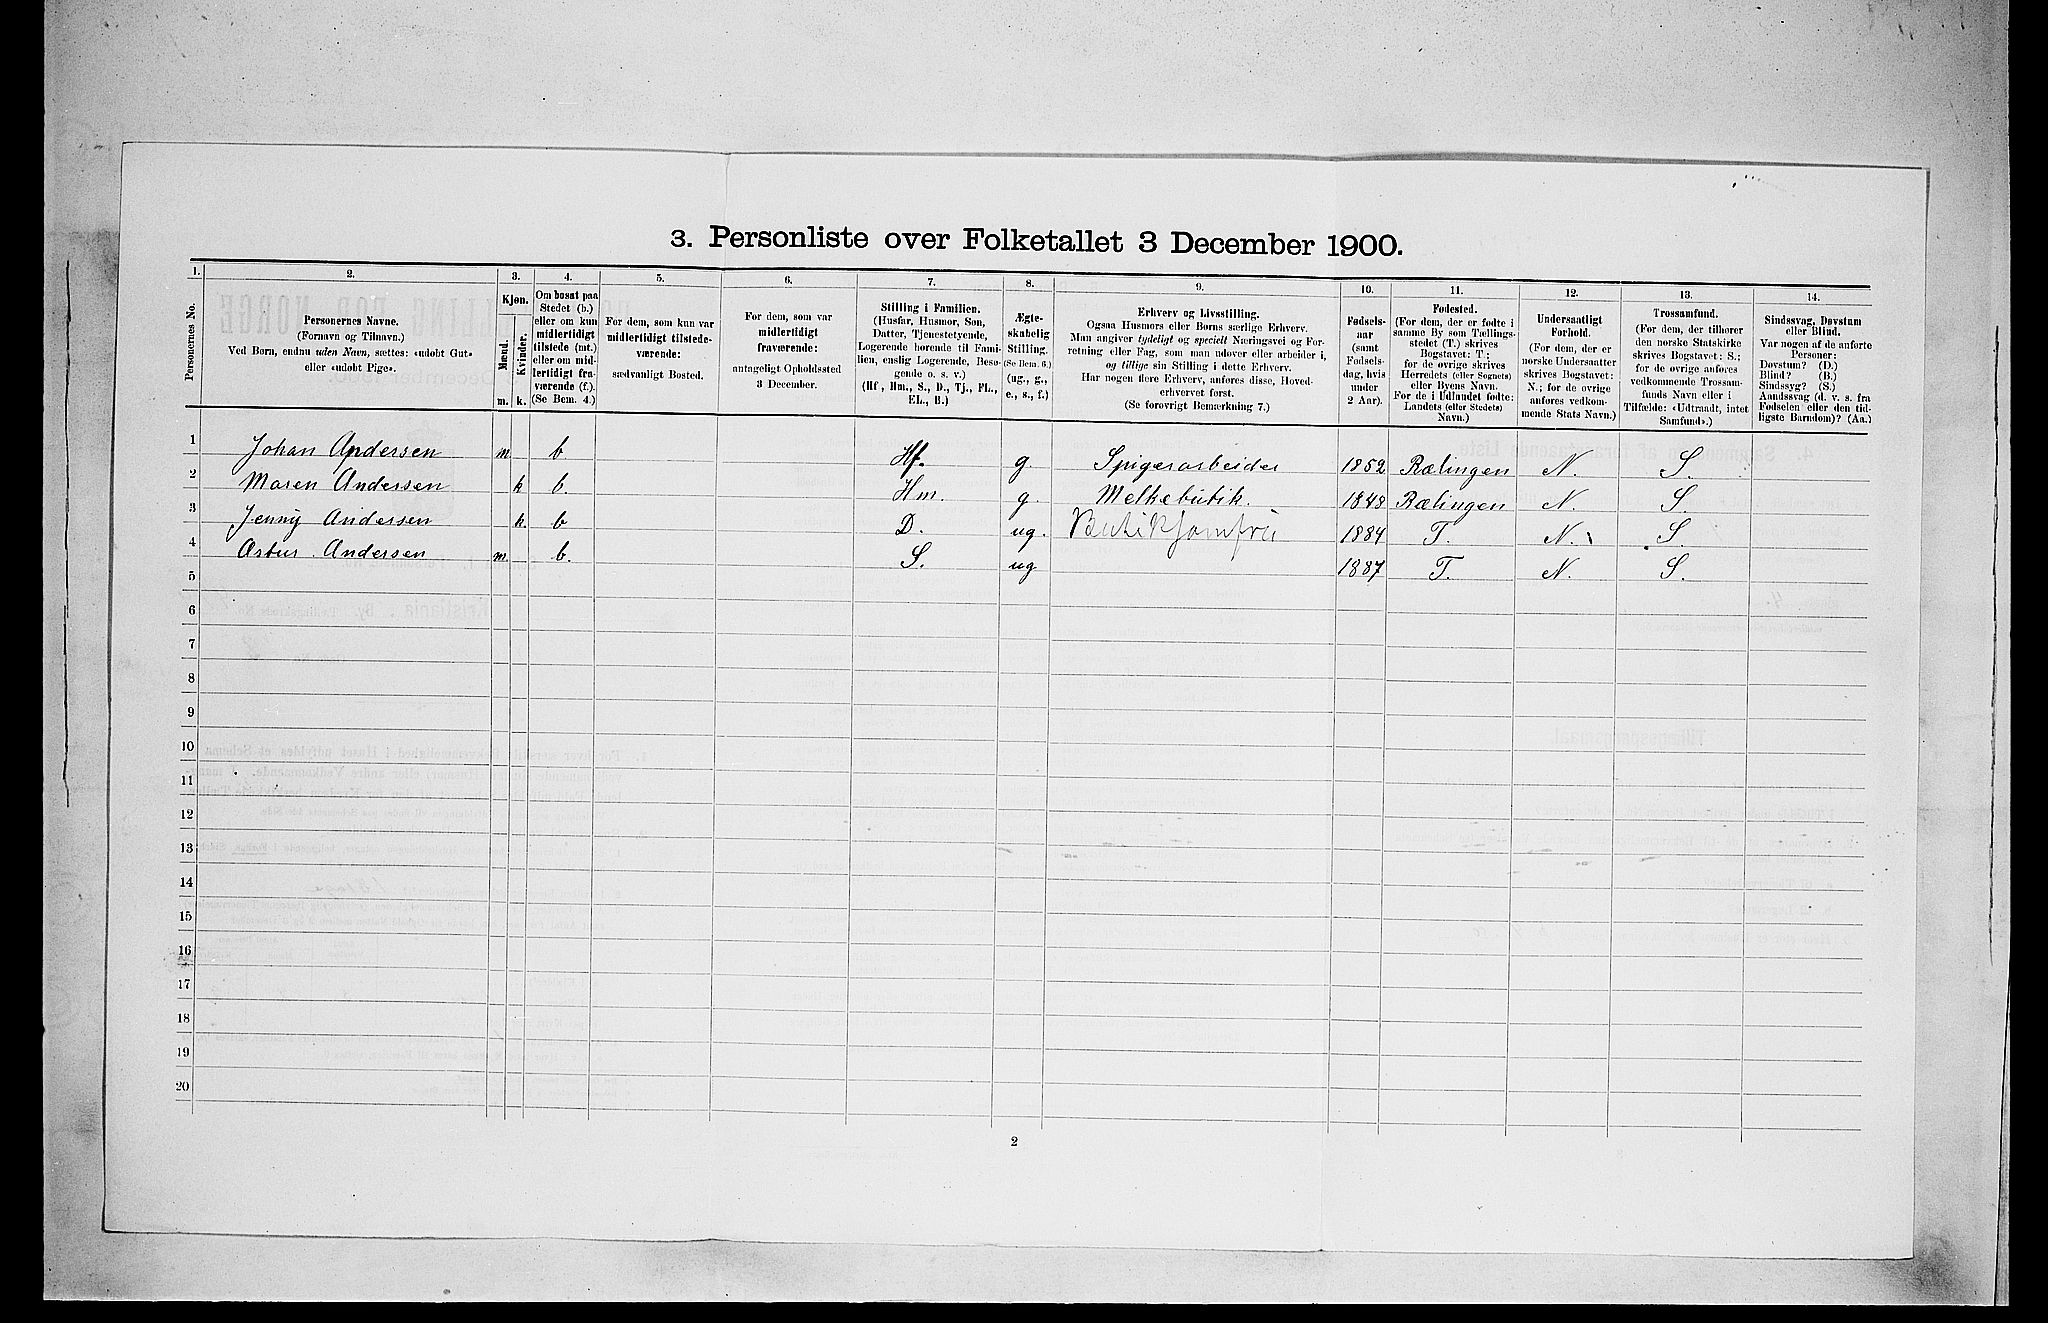 3. Personliste over Folketallet 3 December 1900.
1. 2. 3. 4. 5. 6. 7. 8. 9. 10. 11. 12. 13. 14.
Personernes No.
Personernes Navne.
(Fornavn og Tilnavn.)
Ved Børn, endnu uden Navn, sættes: «udøbt Gut»
eller «udøbt Pige».
Kjøn.
Mænd.
Kvinder.
m. k.
Om bosat paa
Stedet (b.)
eller om kun
midlertidigt
tilstede (mt.)
eller om mid-
lertidigt fra-
værende (f.).
(Se Bem. 4.)
For dem, som kun var
midlertidigt tilstede-
værende:
sædvanligt Bosted.
For dem, som var
midlertidigt
fraværende:
antageligt Opholdssted
3 December.
Stilling i Familien.
(Husfar, Husmor, Søn,
Datter, Tjenestetyende,
Logerende hørende til Fami-
lien, enslig Logerende, Besø-
gende o. s. v.)
(Hf., Hm., S., D., Tj., FL.,
EL., B.)
Ægte-
skabelig
Stilling.
(Se Bem. 6.)
(ug., g.,
e., s., f.)
Erhverv og Livsstilling.
Ogsaa Husmors eller Børns særlige Erhverv.
Man angiver tydeligt og specielt Næringsvei og For-
retning eller Fag, som man udøver eller arbeider i,
og tillige sin Stilling i dette Erhverv.
Har nogen flere Erhverv, anføres disse, Hoved-
erhvervet først.
(Se forøvrigt Bemærkning 7.)
Fødsels-
aar
(samt
Fødsels-
dag, hvis
under
2 Aar).
Fødested.
(For dem, der er fødte i
samme By som Tællings-
stedet (T.) skrives
Bogstavet: T.;
for de øvrige skrives
Herredets (eller Sognets)
eller Byens Navn.
For de i Udlandet fødte:
Landets (eller Stedets)
Navn.)
Undersaatligt
Forhold.
(For dem, der er
norske Undersaatter
skrives Bogstavet:
N.; for de øvrige
anføres vedkom-
mende Stats Navn.)
Trossamfund.
(For dem, der tilhører
den norske Statskirke
skrives Bogstavet: S.;
for de øvrige anføres
vedkommende Trossam-
funds Navn eller i
Tilfælde: «Udtraadt, intet
Samfund».)
Sindssvag, Døvstum
eller Blind.
Var nogen af de anførte
Personer:
Døvstum? (D.)
Blind? (B.)
Sindssyg? (S.)
Aandssvag (d. v. s. fra
Fødselen eller den tid-
ligste Barndom)? (Aa.)
1 Johan Andersen m. b Hf. g. Spigerarbeider 1852 Rælingen N. S.
2 Maren Andersen k b. Hm. g. Melkebutik. 1848 Rælingen N. S.
3 Jenny Andersen k. b D. ug. Butikjomfru 1884 T. N. S.
4 Artur Andersen m. b. S. ug 1887 T. N. S.
5
6
7
8
9
10
11
12
13
14
15
16
17
18
19
20
2